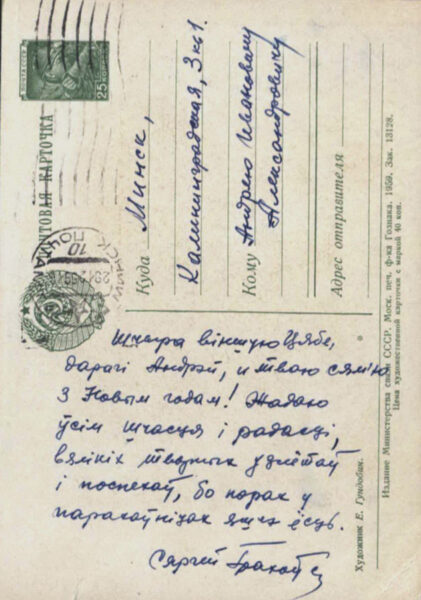 ПОЧТА СССР
25 КОПЕЕК
ПОЧТОВАЯ КАРТОЧКА
МИНСК ПОЧТАМТ
10
Куда Минск,
Калининградская, 3 кв 1.
Кому Андрею Ивановичу
Александровичу
Адрес отправителя
Шчыра віншую Цябе,
дарагі Андрэй, і тваю сям'ю
З Новым годам! Жадаю
ўсім шчасця і радасці,
вялікіх творчых узлётаў
і поспехаў, бо порах у
парахаўніцах яшчэ ёсць.
Сяргей Грахоўскі
Художник Е. Гундобин.
Издание Министерства связи СССР. Моск. печ. ф-ка Гознака. 1959. Зак. 13128.
Цена художественной карточки с маркой 40 коп.